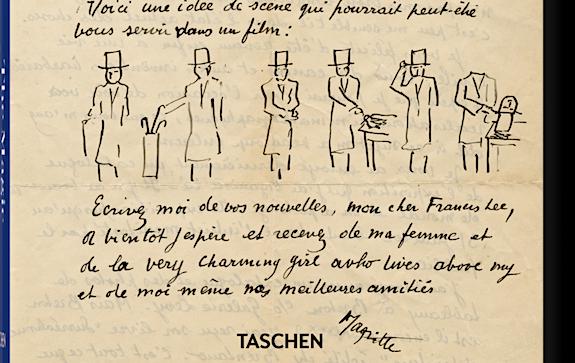 Voici une idée de scène qui pourrait peut-être
vous servir dans un film :
Ecrivez moi de vos nouvelles, mon cher Francis Lee,
A bientôt j'espère et recevez de ma femme et
de la very charming girl who lives above my
et de moi même nos meilleures amitiés
Magritte
TASCHEN